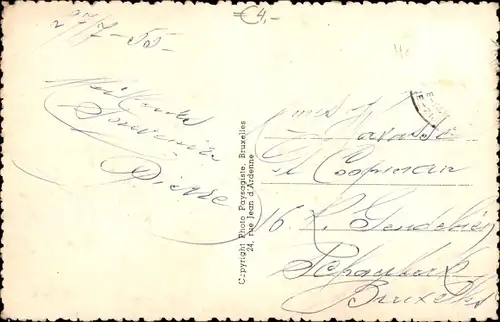 €4,-
27/7-55-
Meilleurs
Souvenirs
Pierre
Copyright Photo Paysagiste, Bruxelles
24, rue Jean d'Ardenne
Et Coopman
16
Schaerbeek
Bruxelles